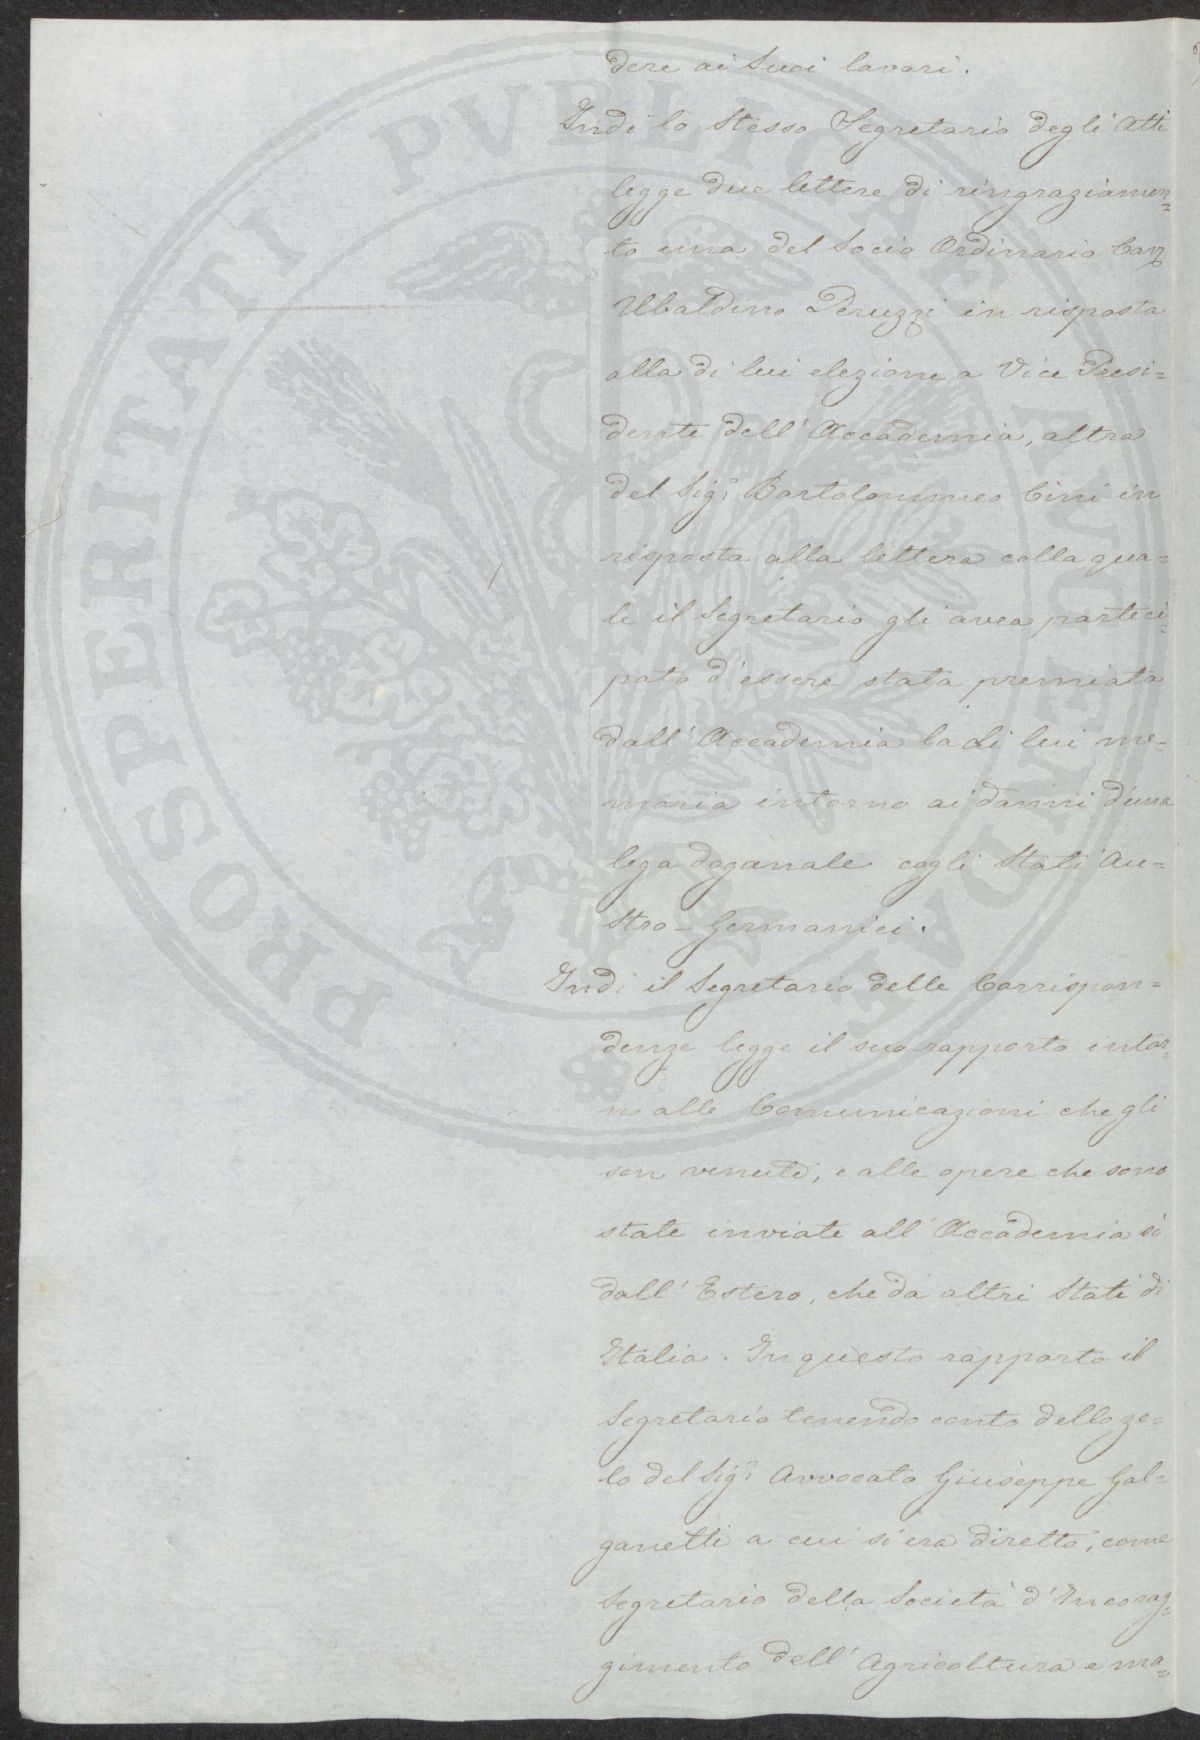 dere ai Suoi lavori.
Indi lo Stesso Segretario degli Atti
legge due lettere di ringraziamen=
to una del Socio Ordinario Cav.
Ubaldino Peruzzi in risposta
alla di lui elezione a Vice Presi=
dente dell' Accademia, altra
del Sigr. Bartolommeo Cini in
risposta alla lettera colla qua=
le il Segretario gli avea parteci=
pato d'essere stata premiata
dall' Accademia la di lui me=
moria intorno ai danni d'una
lega doganale cogli Stati Au=
stro-Germanici.
Indi il Segretario delle Corrispon=
denze legge il suo rapporto intor=
no alle Comunicazioni che gli
son venute, e alle opere che sono
state inviate all' Accademia sì
dall' Estero, che da altri Stati di
Italia. In questo rapporto il
Segretario tenendo conto dello ze=
lo del Sigr. Avvocato Giuseppe Gal=
ganetti a cui si era diretto, come
Segretario della Società d'Incorag=
gimento dell' Agricoltura e ma=
PROSPERITATI PVBLICAE AVGENDAE